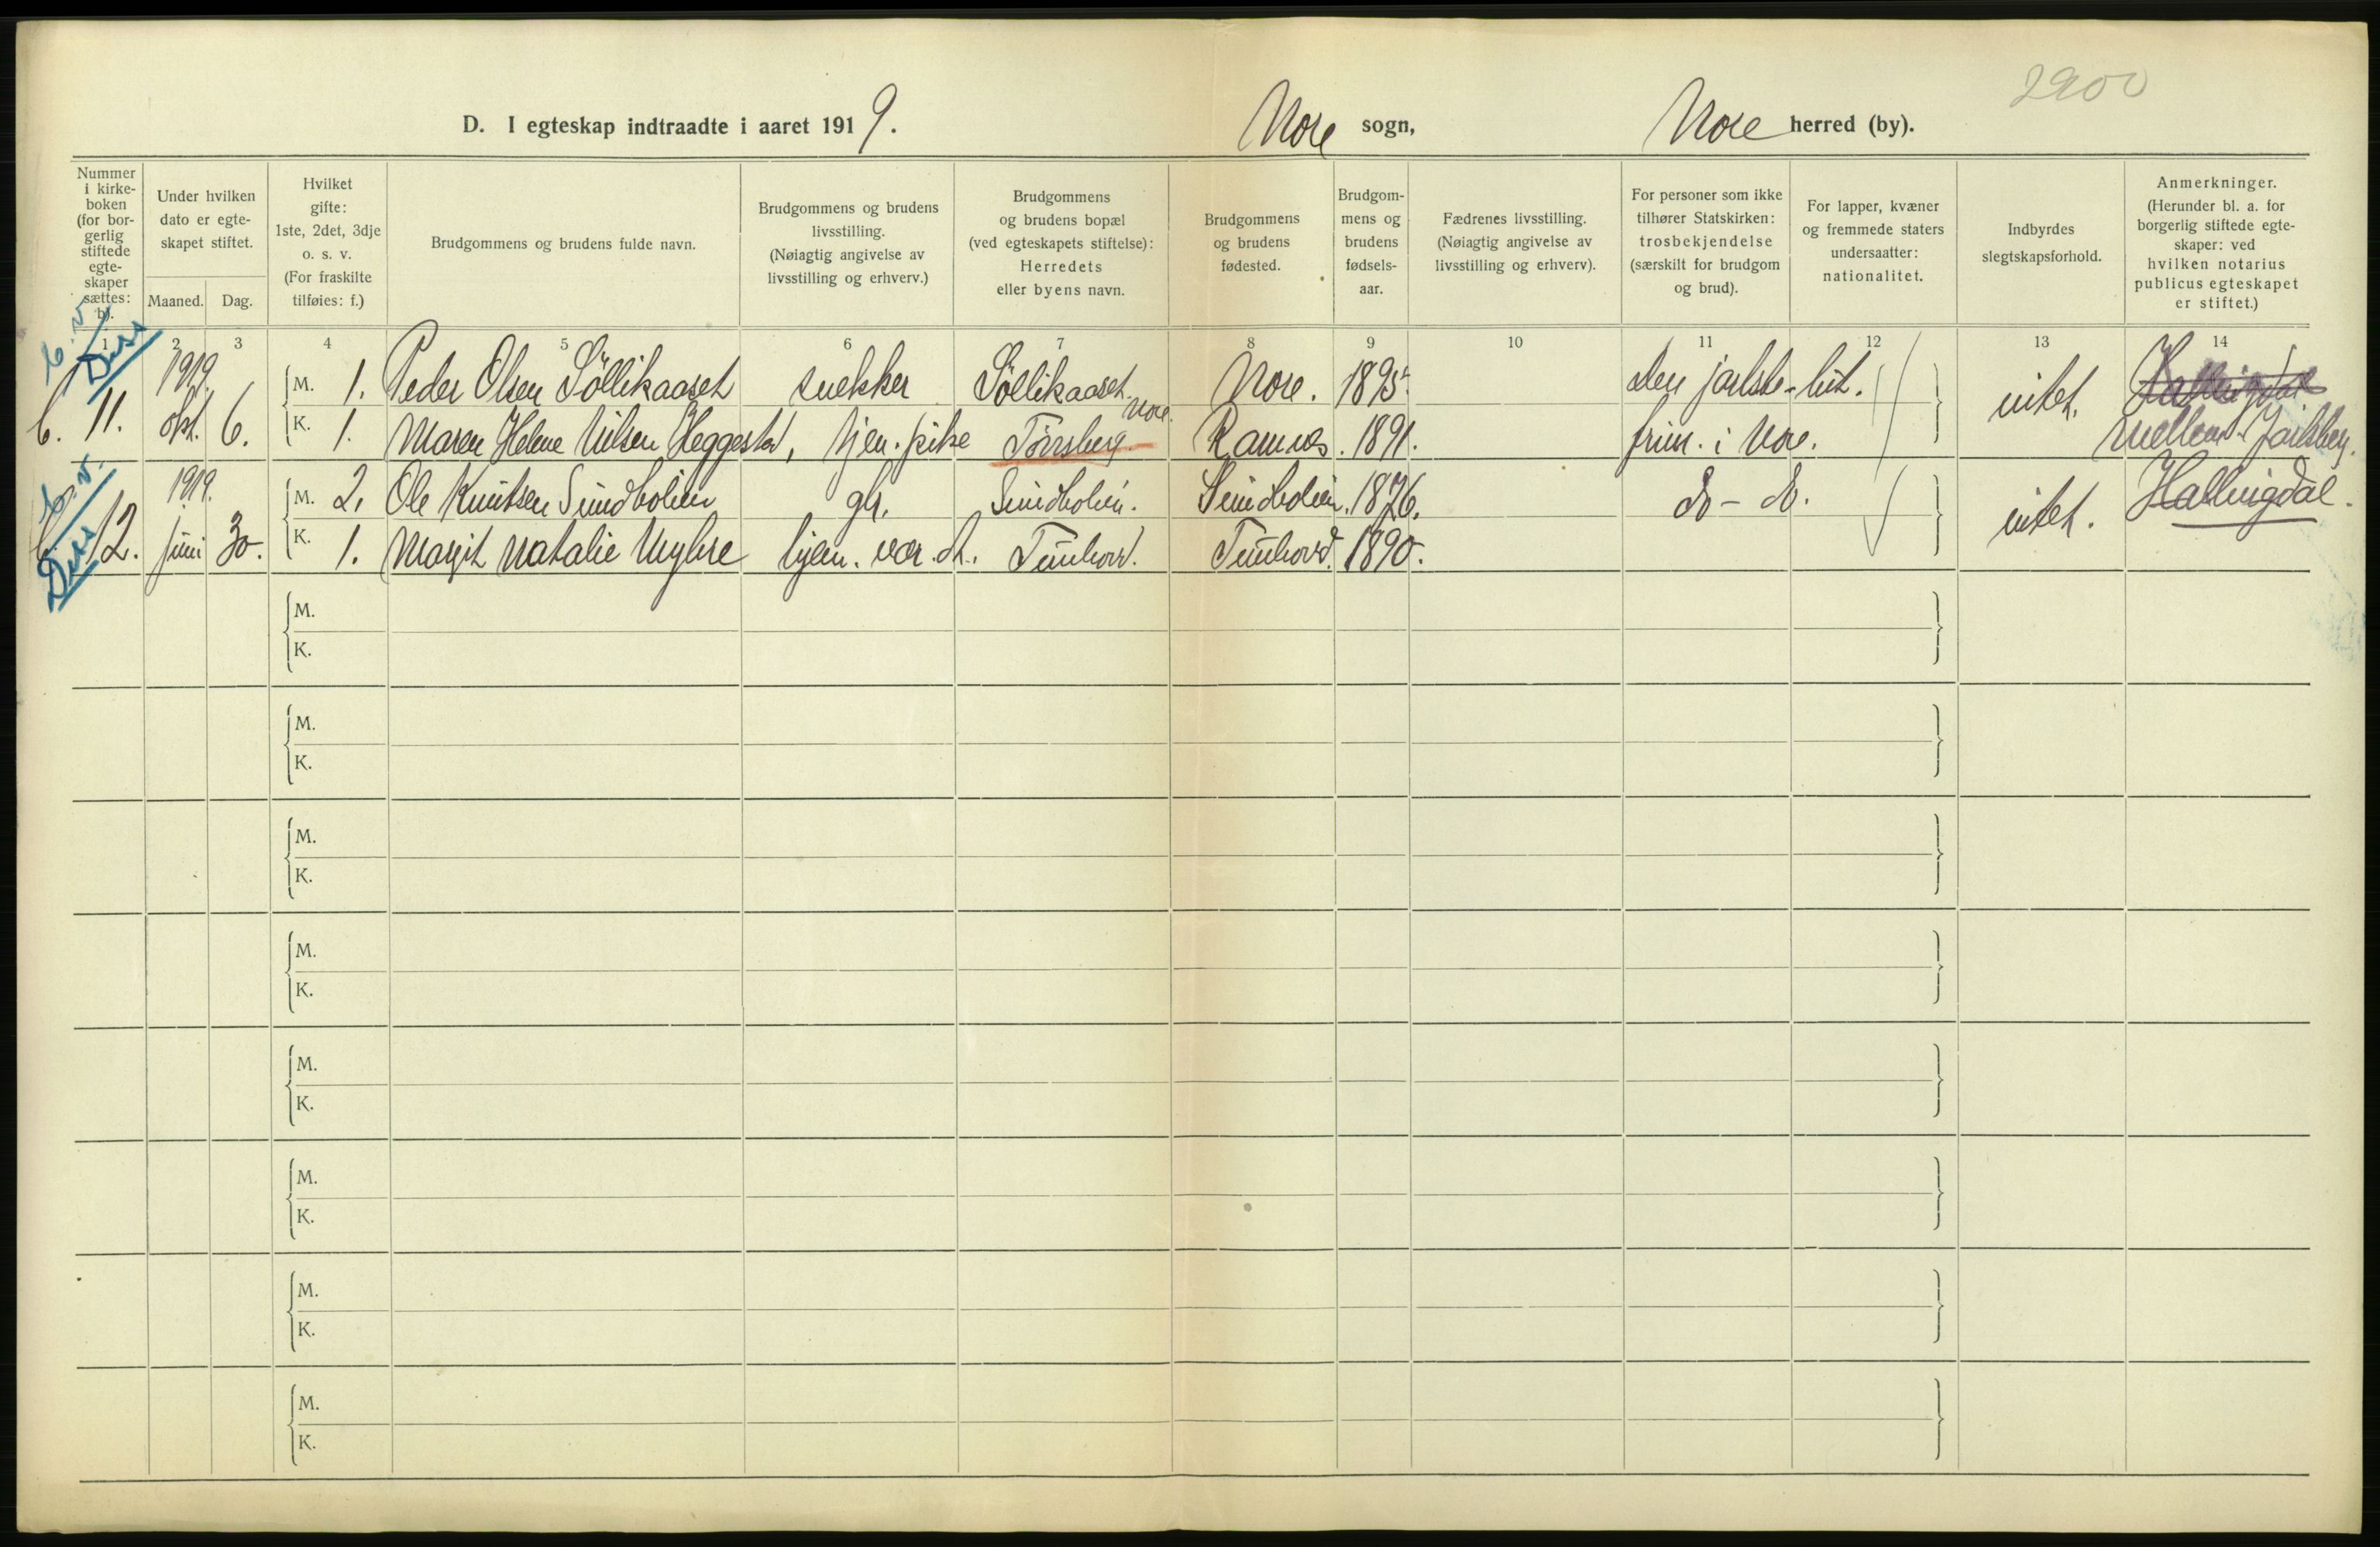 2900
D. I egteskap indtraadte i aaret 1919. Nore sogn, Nore herred (by).
Nummer i kirke-boken (for bor-gerlig stiftede egte-skaper sættes: b).
Under hvilken dato er egte-skapet stiftet.
Maaned. Dag.
Hvilket gifte: 1ste, 2det, 3dje o. s. v. (For fraskilte tilføies: f.)
Brudgommens og brudens fulde navn.
Brudgommens og brudens livsstilling. (Nøiagtig angivelse av livsstilling og erhverv.)
Brudgommens og brudens bopæl (ved egteskapets stiftelse): Herredets eller byens navn.
Brudgommens og brudens fødested.
Brudgom-mens og brudens fødsels-aar.
Fædrenes livsstilling. (Nøiagtig angivelse av livsstilling og erhverv).
For personer som ikke tilhører Statskirken: trosbekjendelse (særskilt for brudgom og brud).
For lapper, kvæner og fremmede staters undersaatter: nationalitet.
Indbyrdes slegtskapsforhold.
Anmerkninger. (Herunder bl. a. for borgerlig stiftede egte-skaper: ved hvilken notarius publicus egteskapet er stiftet.)
1 2 3 4 5 6 7 8 9 10 11 12 13 14
b. v. Diss
b. 11. 1919. okt. 6. M. 1. Peder Olsen Söllikaaset snekker Söllikaaset Nore. Nore. 1895. Den jarlsb-lut. intet. Hallingdal
K. 1. Maren Helene Nilsen Heggestad, tjen. pike Tönsberg Ramnes. 1891. frim. i Nore. mellem Jarlsberg.
b. v. Diss
b. 12. 1919. juni 30. M. 2. Ole Knutsen Sundbolien gbr. Sundbolien. Sundbolien. 1876. do - do. intet. Hallingdal.
K. 1. Margit Natalie Myhre tjen. vær. dt. Tunhovd. Tunhovd. 1890.
M.
K.
M.
K.
M.
K.
M.
K.
M.
K.
M.
K.
M.
K.
M.
K.